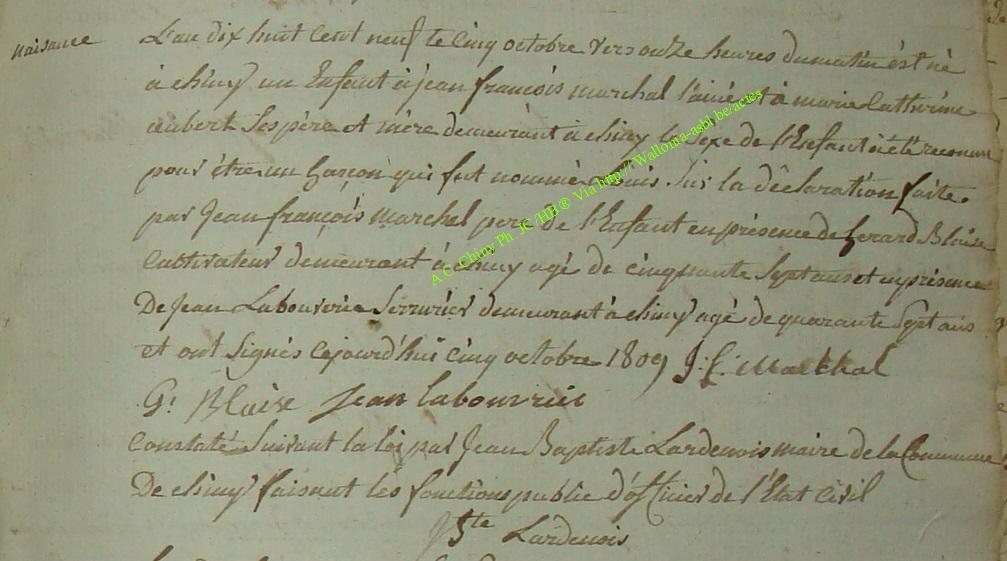 naisance
L'an dix huit Cent neuf le Cinq octobre vers onze heures du matin est né
à chiny un Enfant à jean françois marchal l'ainé et à marie Catherine
aubert Ses père et mère demeurant à chiny le Sexe de l'Enfant a été reconnu
pour être un Garçon qui fut nommé Sur la déclaration faite
par Jean françois marchal pere de l'Enfant en présence de Gerard Blaise
Cultivateur demeurant à chiny agé de cinquante Sept ans et en présence
De Jean Labouvrie Serrurier demeurant à chiny agé de quarante Sept ans
et ont Signés cejourd'hui cinq octobre 1809 J. f. Marchal
G. Blaise Jean labouvrie
Constaté Suivant la loi par Jean Baptiste Lardenois maire de la Commune
De chiny faisant les fonctions public d'officier de l'Etat Civil
Lardenois
A.C. Chiny Ph. JC /HB ® Via http://Wallonia-asbl.be/actes